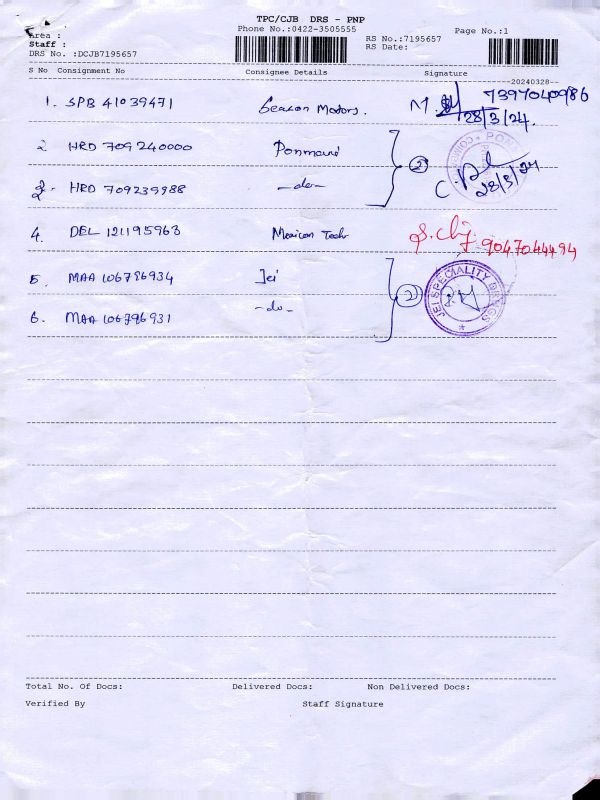 TPC/CJB DRS - PNP
Area :
Phone No.:0422-3505555
Page No.:1
Staff :
RS No.:7195657
DRS No. :DCJB7195657
RS Date:
S No Consignment No Consignee Details Signature
20240328
1. SPB 41039471 Beacon Motors. M. 7397040986
28/3/24.
2 HRD 709240000 Ponmani 2
3. HRD 709239988 -do- C. 28/3/24
4. DEL 121195963 Mexican Tech 9047044494
5. MAA 106786934 Jei 2 JEI SPECIALITY DRUGS
6. MAA 106786931 -do-
Total No. Of Docs: Delivered Docs: Non Delivered Docs:
Verified By Staff Signature